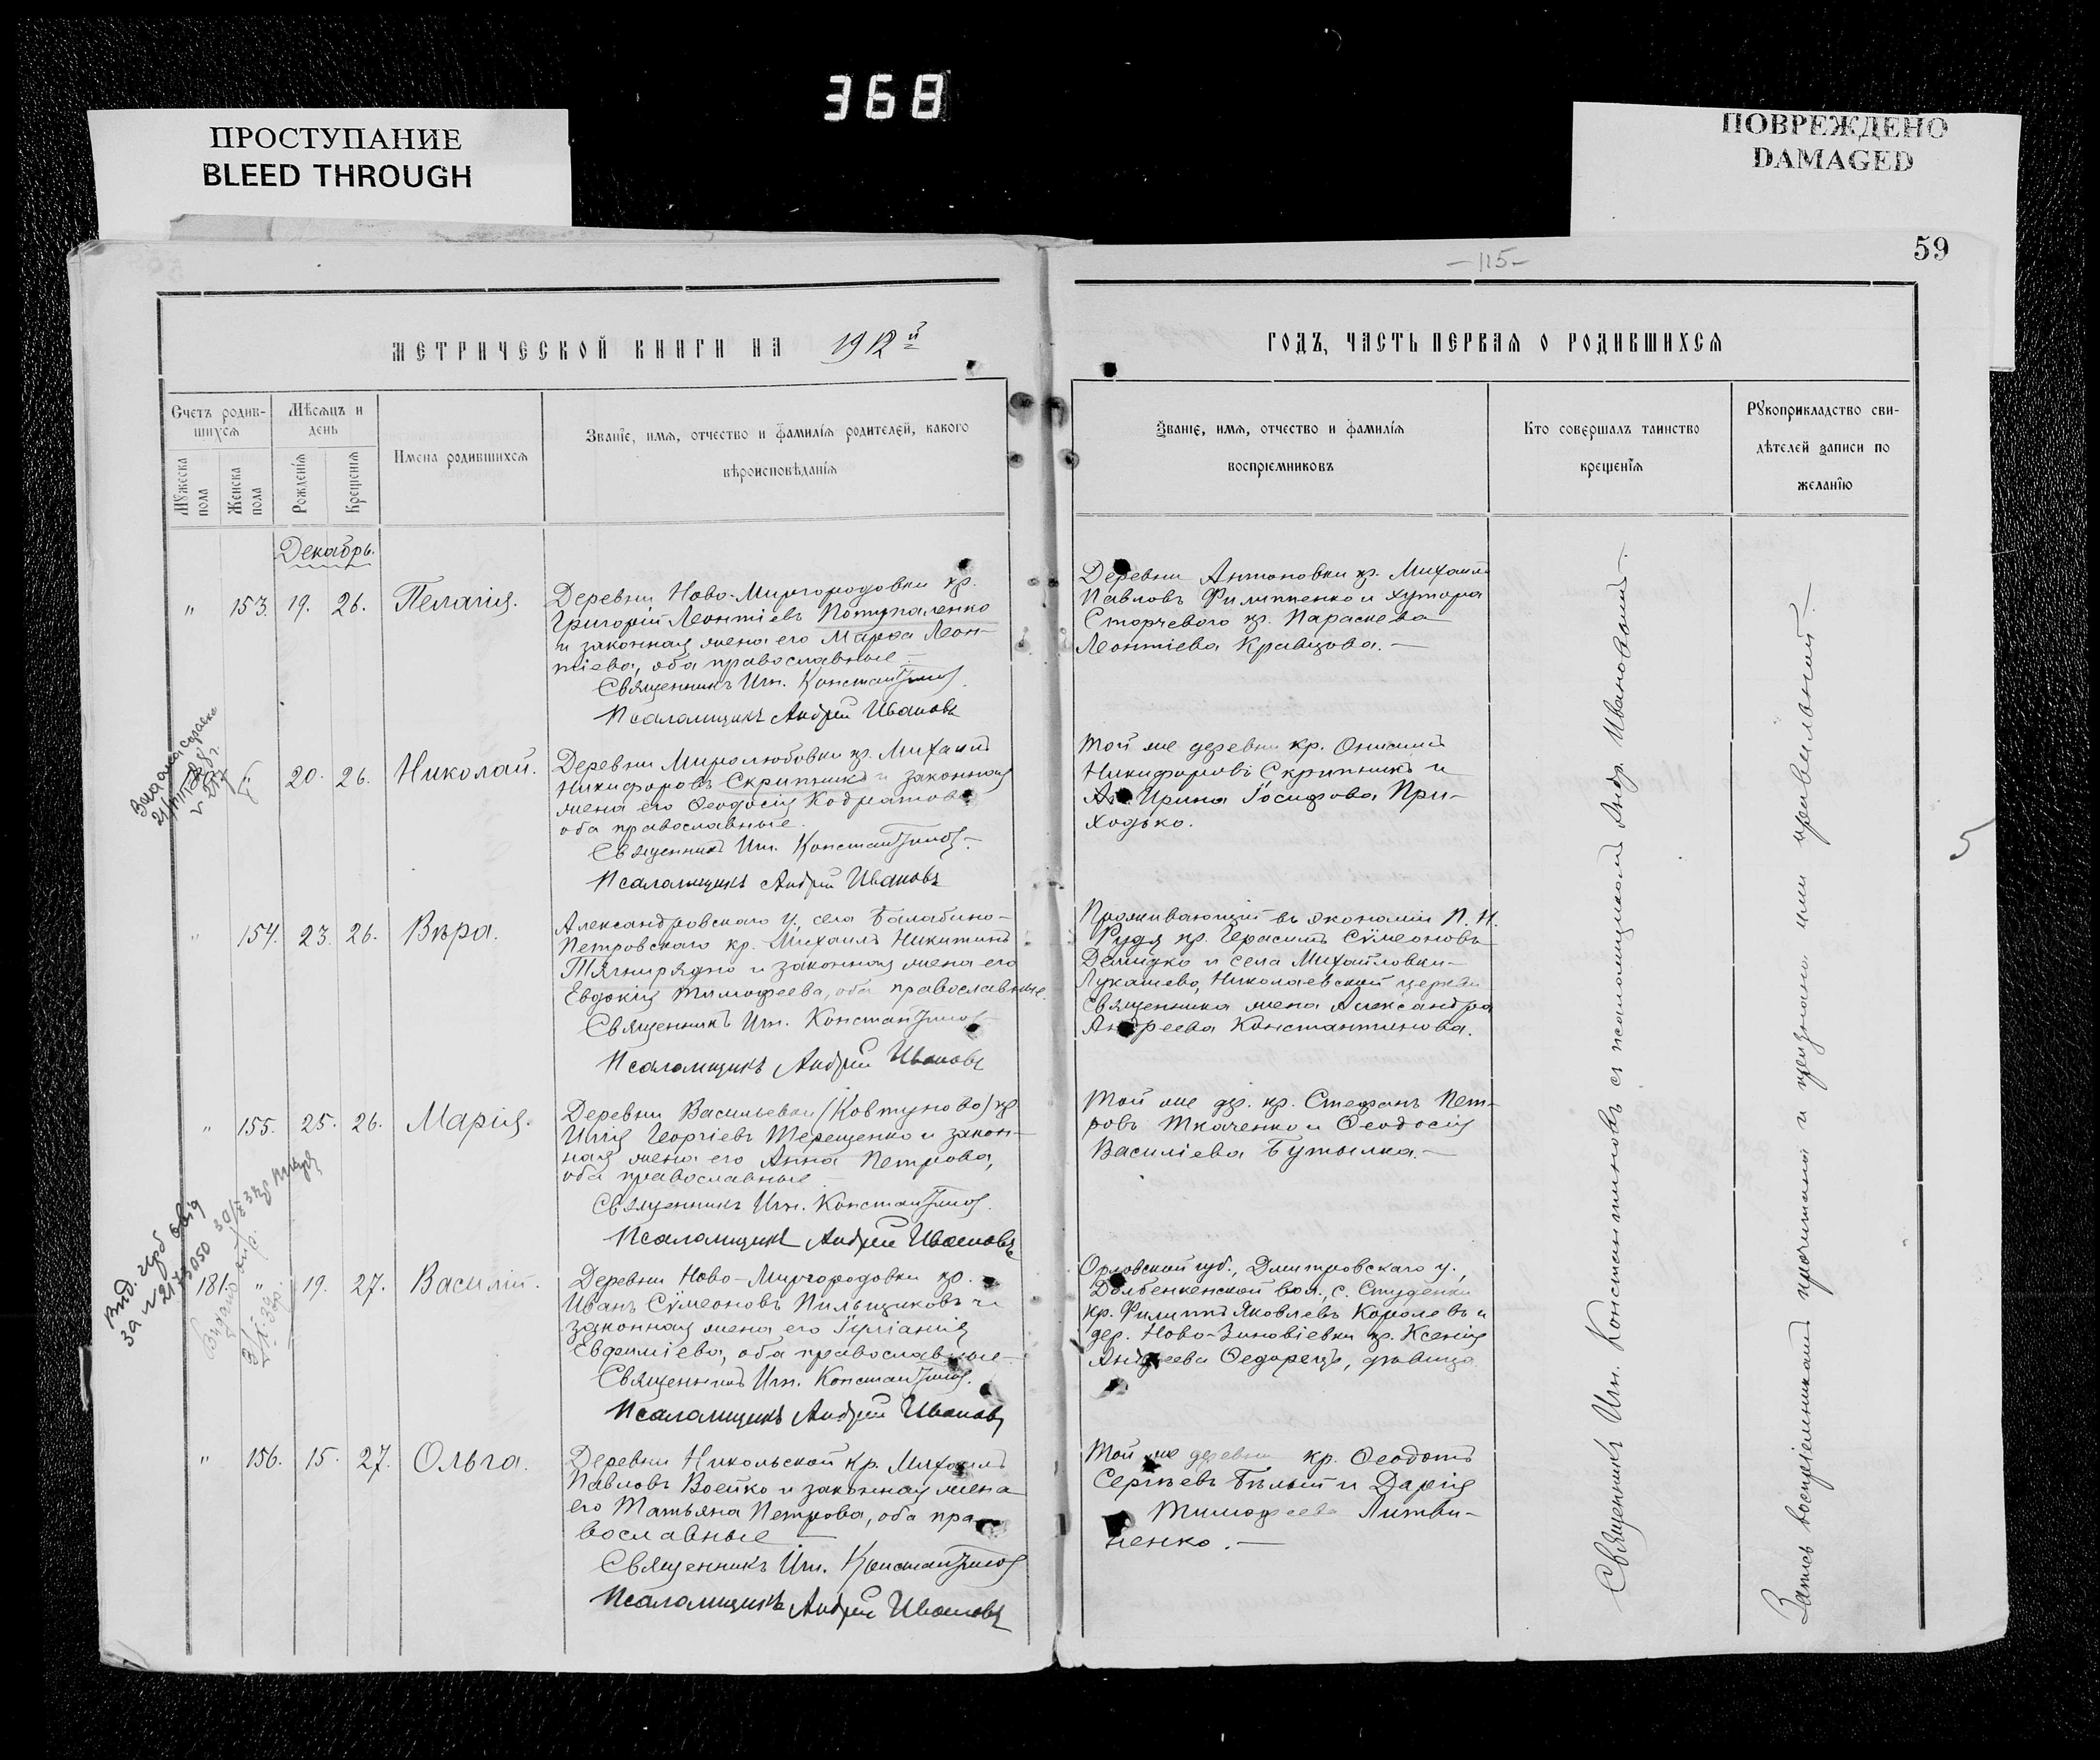 368
ПРОСТУПАНИЕ
BLEED THROUGH
ПОВРЕЖДЕНО
DAMAGED
59
—115—
МЕТРИЧЕСКОЙ КНИГИ НА 1912й
ГОДЪ, ЧАСТЬ ПЕРВАЯ О РОДИВШИХСЯ
Счетъ родив-
шихся
Мѣсяцъ и
день
Мужеска
пола
Женска
пола
Рожденія
Крещенія
Имена родившихся
Званіе, имя, отчество и фамилія родителей, какого
вѣроисповѣданія
Званіе, имя, отчество и фамилія
воспріемниковъ
Кто совершалъ таинство
крещенія
Рукоприкладство сви-
дѣтелей записи по
желанію
Декабрь.
" 153. 19. 26. Пелагія.
Деревни Ново-Миргородовки кр.
Григорій Леонтіевъ Потупаленко
и законная жена его Марѳа Леон-
тіева, оба православные —
Священникъ Игн. Константиновъ
Псаломщикъ Андрей Ивановъ
Деревни Антоновки кр. Михаилъ
Павловъ Филипенко и хутора
Сторчевого кр. Параскева
Леонтіева Кравцова. —
20. 26. Николай.
Деревни Миролюбовки кр. Михаилъ
Никифоровъ Скрипникъ и законная
жена его Ѳеодосія Кодратова
оба православные.
Священникъ Игн. Константиновъ
Псаломщикъ Андрей Ивановъ
Той же деревни кр. Онисимъ
Никифоровъ Скрипникъ и
Ирина Іосифова При-
ходько.
" 154. 23. 26. Вѣра.
Александровскаго у., села Балабино-
Петровскаго кр. Михаилъ Никитинъ
Тягнирядно и законная жена его
Евдокія Тимофеева, оба православные.
Священникъ Игн. Константиновъ
Псаломщикъ Андрей Ивановъ
Проживающій въ экономіи П. Н.
Рудя кр. Герасимъ Сѵмеоновъ
Демидко и села Михайловки-
Лукашево, Николаевской церкви
Священника жена Александра
Андреева Константинова.
" 155. 25. 26. Марія.
Деревни Васильевки (Ковтуново) кр.
Илія Георгіевъ Терещенко и закон-
ная жена его Анна Петрова,
оба православные —
Священникъ Игн. Константиновъ
Псаломщикъ Андрей Ивановъ
Той же дер. кр. Стефанъ Пет-
ровъ Ткаченко и Ѳеодосія
Василіева Бутылка. —
181. " 19. 27. Василій.
Деревни Ново-Миргородовки кр.
Иванъ Сѵмеоновъ Пильщиковъ и
законная жена его Іуліанія
Евфиміева, оба православные —
Священникъ Игн. Константиновъ
Псаломщикъ Андрей Ивановъ
Орловской губ., Дмитровскаго у.,
Долбенкенской вол., с. Студенки
кр. Филиппъ Яковлевъ Королевъ и
дер. Ново-Зиновіевки кр. Ксенія
Андреева Ѳедорецъ, дѣвица
" 156. 15. 27. Ольга.
Деревни Никольской кр. Михаилъ
Павловъ Воейко и законная жена
его Татьяна Петрова, оба пра-
вославные —
Священникъ Игн. Константиновъ
Псаломщикъ Андрей Ивановъ
Той же деревни кр. Ѳеодотъ
Сергѣевъ Бѣлый и Дарія
Тимофеева Литви-
ненко. —
Священникъ Игн. Константиновъ съ псаломщикомъ Андр. Ивановымъ —
Запись воспріемниками прочитана и признана ими правильной —